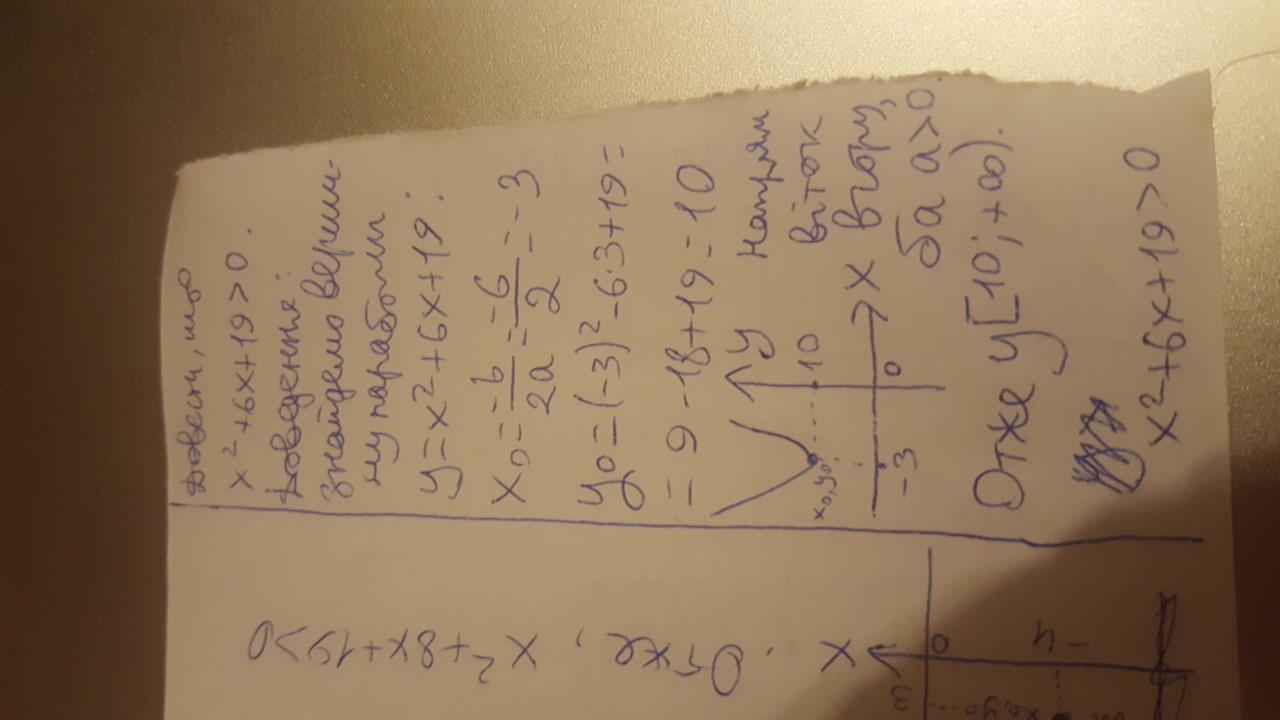 Довести, що
x²+6x+19>0.
Доведення:
знайдемо верши-
ну параболи
y=x²+6x+19:
x₀=-b/2a=-6/2=-3
y₀=(-3)²-6·3+19=
=9-18+19=10
y
10
x₀,y₀
-3
0
x
Напрям
віток
вгору,
ба a>0
Отже y[10;+∞).
x²+6x+19>0
x
0
3
-4
x₀,y₀
Отже, x²+8x+19>0